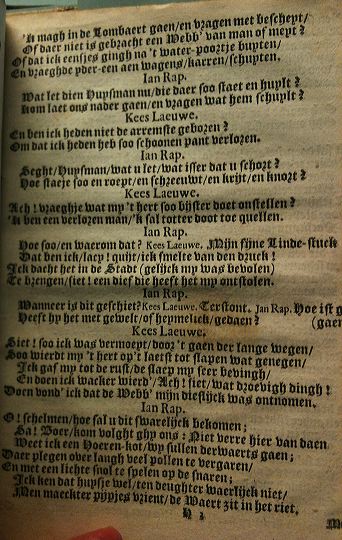 'k magh in de Lombaert gaen/ en vragen met bescheyt/
Of daer niet is gebracht een Webb' van man of meyt?
Of dat ick eensjes gingh na 't water-poortje buyten/
En vraeghde yder-een aen wagens/ karren/ schuyten.
Ian Rap.
Wat let dien Huysman nu/ die daer soo staet en huylt?
Kom laet ons nader gaen/ en vragen wat hem schuylt?
Kees Leeuwe.
En ben ick heden niet de arremste geboren?
Om dat ick heden heb soo schoonen pant verloren.
Ian Rap.
Seght/ Huysman/ wat u let/ wat isser dat u schort?
Hoe staeje soo en roept/ en schreeuwt/ en krijt/ en knort?
Kees Leeuwe.
Ach! vraeghje wat my 't hert soo bijster doet onstellen?
'k Ben een verloren man/ 'k sal totter doot toe quellen.
Ian Rap.
Hoe soo/ en waerom dat? Kees Leeuwe. Mijn fijne Linde-stuck
Wat ben ick/ lacy! quijt/ ick smelte van den druck!
Ick dacht het in de Stadt (gelijck my was bevolen)
Te brengen/ siet! een dief die heeft het my ontstolen.
Ian Rap.
Wanneer is dit geschiet? Kees Leeuwe. Terstont. Jan Rap. Hoe ist g
Heeft hy het met gewelt/ of heymelick/ gedaen? (gaen
Kees Leeuwe.
Siet! soo ick was vermoeyt/ door 't gaen der lange wegen/
Soo wierdt my 't hert op 't laetst tot slapen wat genegen/
Ick gaf my tot de rust/ de slaep my seer bevingh/
En doen ick wacker wierd'/ Ach! siet/ wat droevigh dingh!
Doen vond' ick dat de Webb' mijn dieflijck was ontnomen.
Ian Rap.
O! schelmen/ hoe sal u dit swarelijck bekomen;
Sa! Boer/ kom volght ghy ons: Niet verre hier van daen
Weet ick een Hoeren-kot/ wy sullen derwaerts gaen;
Daer plegen over langh veel pollen te vergaren/
En met een lichte snol te spelen op de snaren;
Ick ken dat huysje wel/ ten deughter waerlijck niet/
Men maeckter pijpjes vrient/ de Waert zit in het riet.